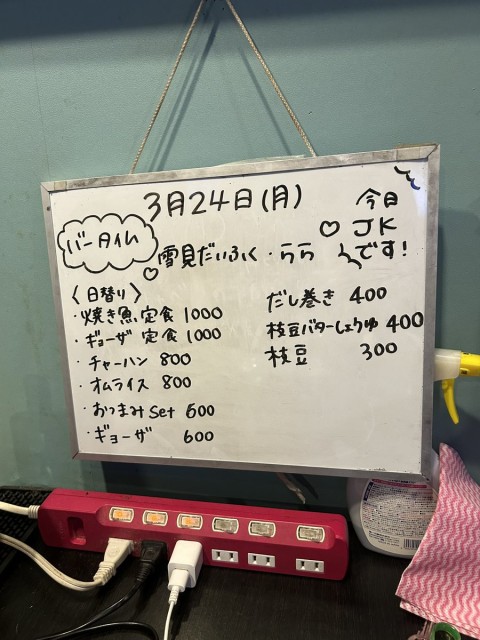 3月24日(月)
今日
JK
です!
バータイム
雪見だいふく・らら
〈日替り〉
・焼き魚定食 1000
・ギョーザ 定食 1000
・チャーハン 800
・オムライス 800
・おつまみset 600
・ギョーザ 600
だし巻き 400
枝豆バターしょうゆ 400
枝豆 300